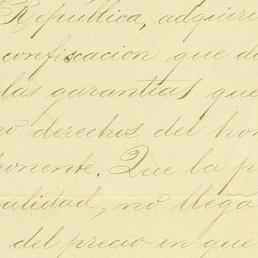 Republica, adquiri
confiscacion que d
las garantias que
o derechos del hon
ponente. Que la p
alidad, no llega
del precio in que